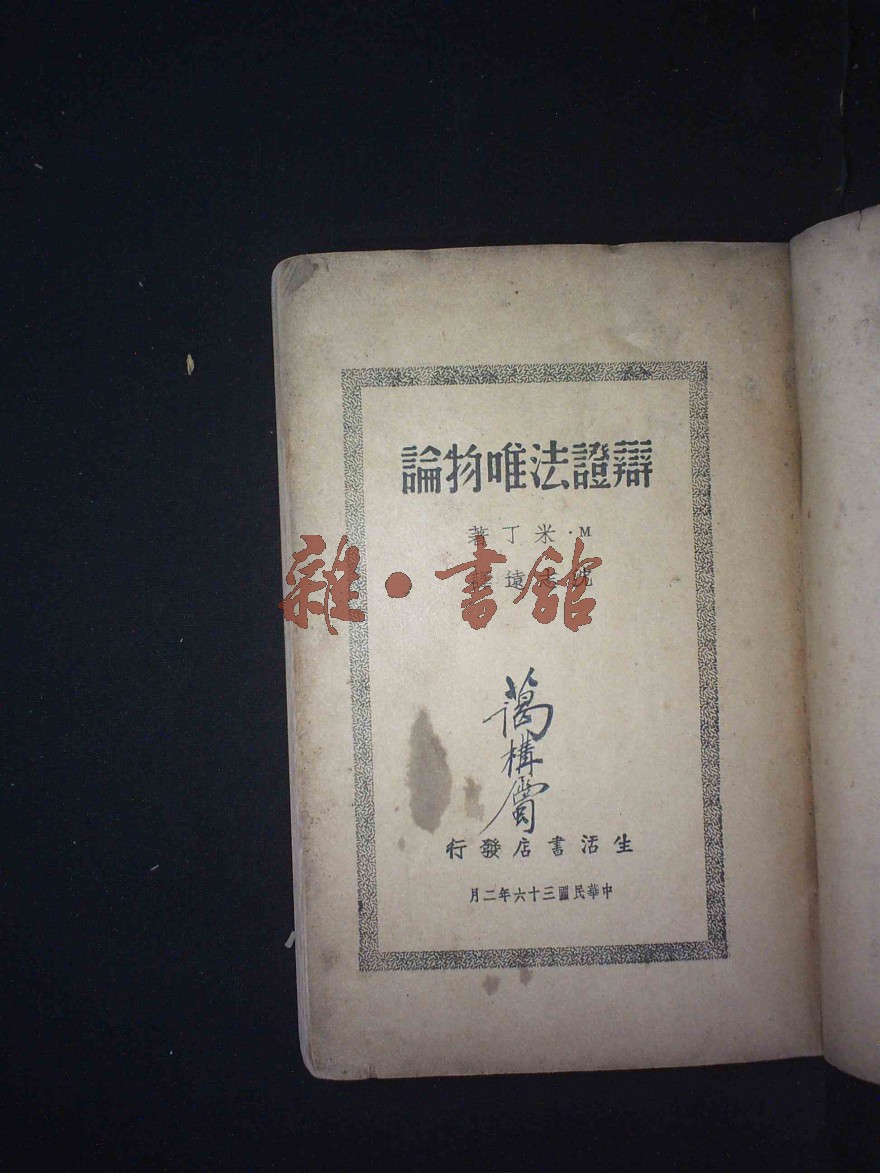 辯證法唯物論
M·米丁著
沈志遠譯
雜·書館
萬構
生活書店發行
中華民國三十六年二月